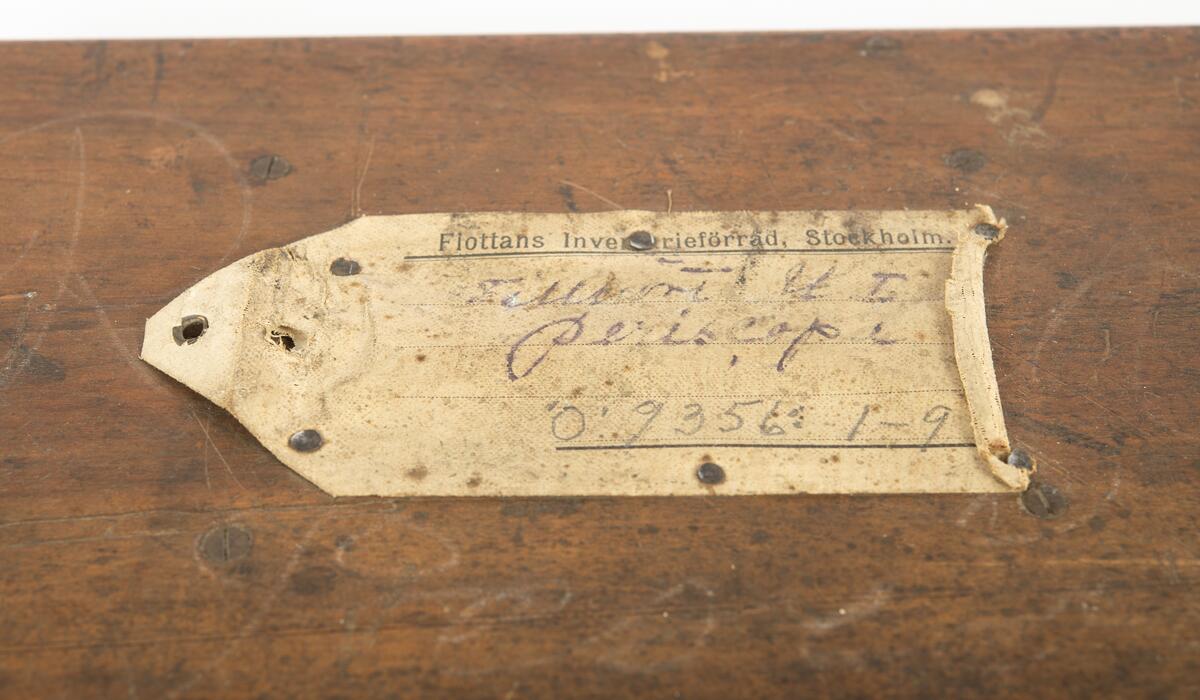 Flottans Inventarieförråd, Stockholm.
Periscope
"O": 9356: 1-9